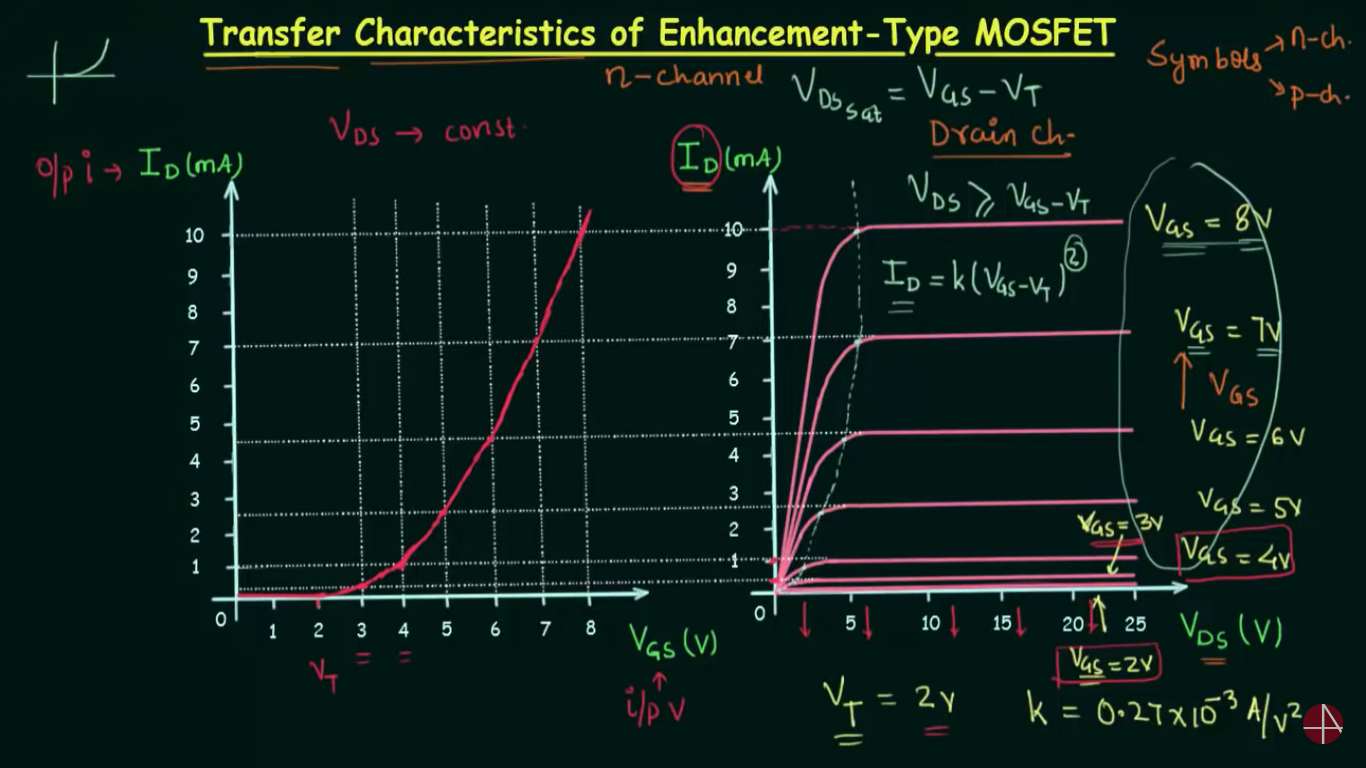 Transfer Characteristics of Enhancement-Type MOSFET
Symbols → n-ch.
→ p-ch.
n-channel
V_DS sat = V_GS - V_T
V_DS → const.
Drain ch-
o/p i → I_D (mA)
10
9
8
7
6
5
4
3
2
1
0
1 2 3 4 5 6 7 8
V_T = =
V_GS (V)
↑
i/p V
I_D (mA)
V_DS ⩾ V_GS - V_T
I_D = k(V_GS - V_T)^2
10
9
8
7
6
5
4
3
2
1
0
5 10 15 20 25
V_DS (V)
V_GS = 8V
V_GS = 7V
↑ V_GS
V_GS = 6V
V_GS = 5V
V_GS = 3V
V_GS = 4V
V_GS = 2V
V_T = 2V
k = 0.27×10^-3 A/V^2